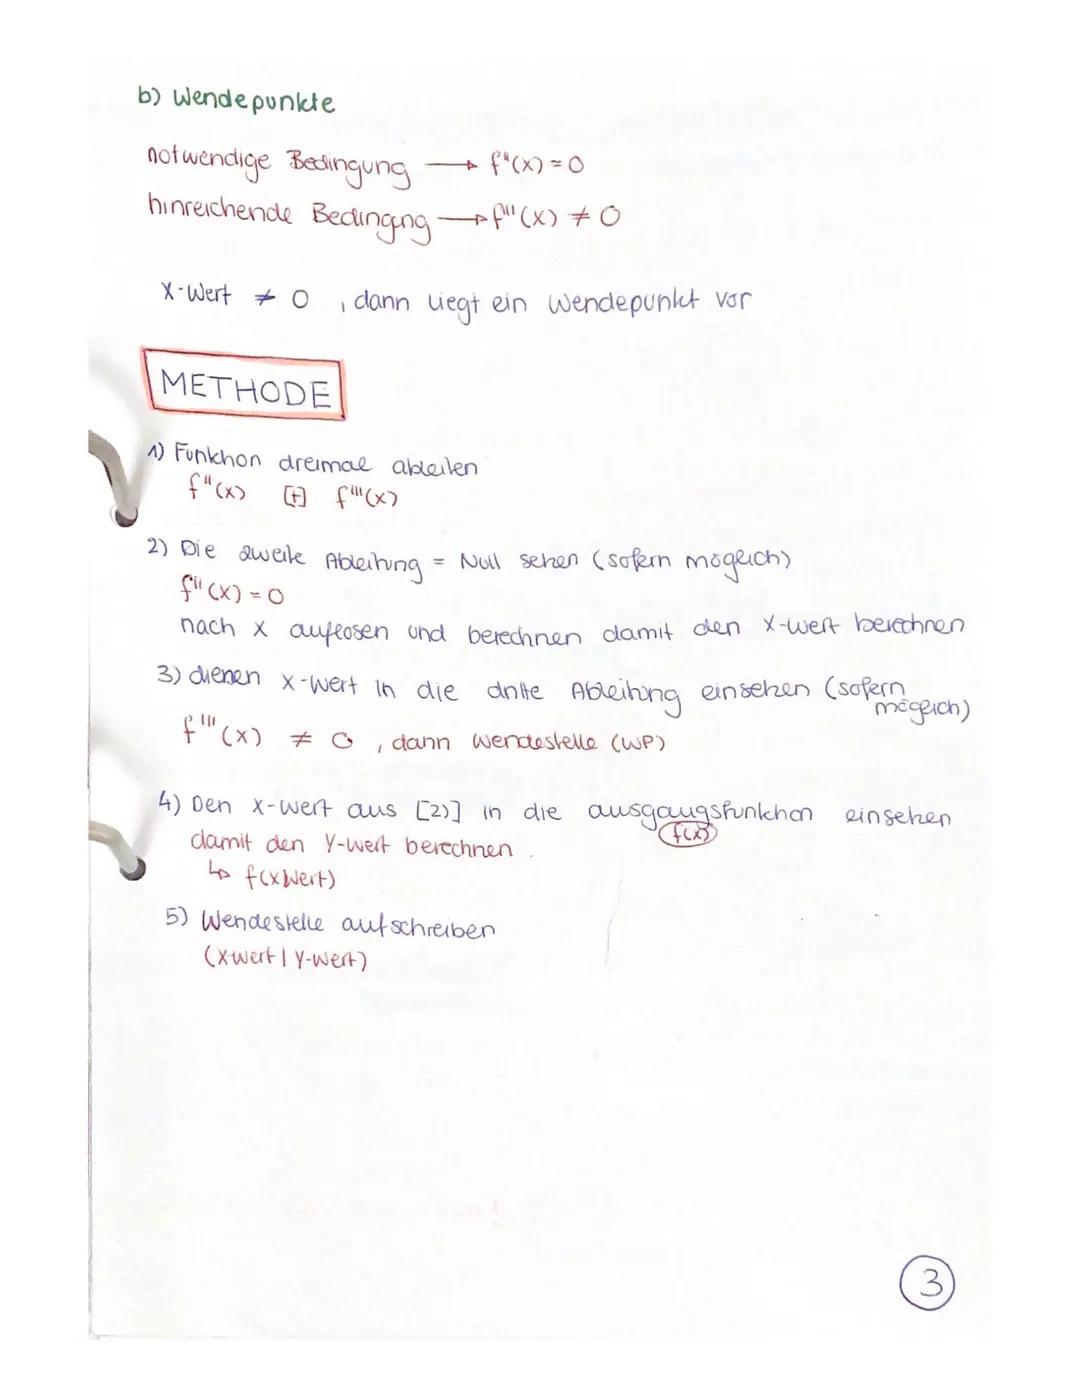 b) Wendepunkte
notwendige Bedingung → f''(x) = 0
hinreichende Bedingng → f'''(x) ≠ 0
X-Wert ≠ 0 , dann liegt ein Wendepunkt vor
METHODE
1) Funktion dreimal ableiten
f''(x) [+] f'''(x)
2) Die zweite Ableitung = Null setzen (sofern möglich)
f''(x) = 0
nach x auflösen und berechnen damit den X-Wert berechnen
3) diesen X-Wert in die dritte Ableitung einsetzen (sofern
möglich)
f'''(x) ≠ 0 , dann Wendestelle (WP)
4) Den X-Wert aus [2)] in die ausgangsfunktion einsetzen
f(x)
damit den Y-Wert berechnen .
↳ f(xWert)
5) Wendestelle aufschreiben
(X-Wert | Y-Wert)
3